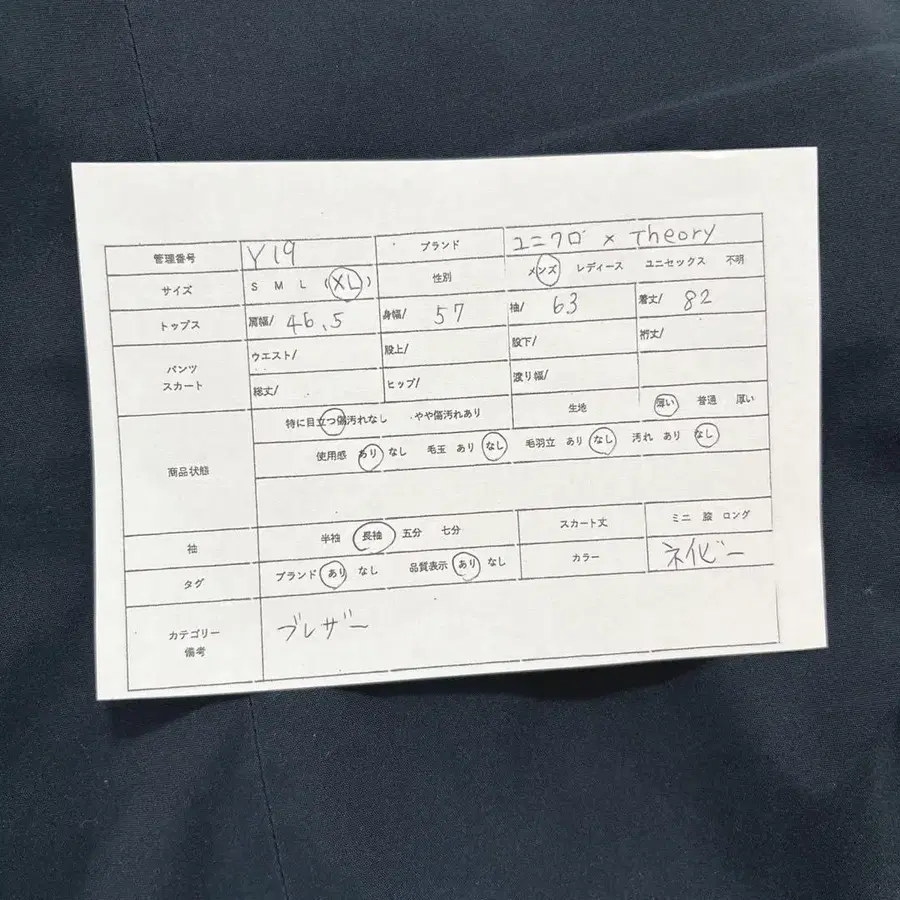 管理番号 Y19 ブランド ユニクロ × Theory
サイズ S M L (XL) 性別 メンズ レディース ユニセックス 不明
トップス 肩幅/ 46.5 身幅/ 57 袖/ 63 着丈/ 82
パンツ スカート ウエスト/ 股上/ 股下/ 裄丈/
総丈/ ヒップ/ 渡り幅/
商品状態 特に目立つ傷汚れなし やや傷汚れあり 生地 薄い 普通 厚い
使用感 あり なし 毛玉 あり なし 毛羽立 あり なし 汚れ あり なし
袖 半袖 長袖 五分 七分 スカート丈 ミニ 膝 ロング
タグ ブランド あり なし 品質表示 あり なし カラー ネイビー
カテゴリー 備考 ブレザー